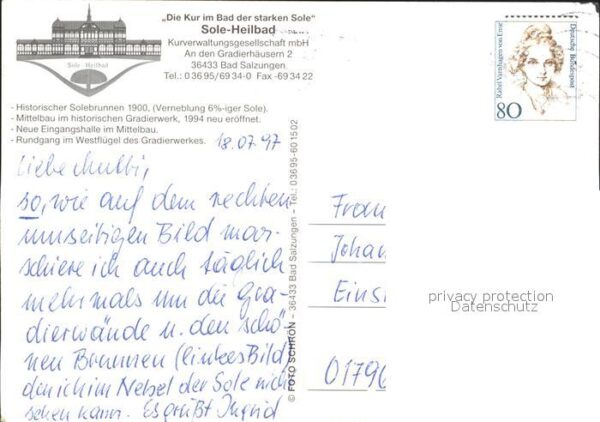 „Die Kur im Bad der starken Sole"
Sole-Heilbad
Kurverwaltungsgesellschaft mbH
An den Gradierhäusern 2
36433 Bad Salzungen
Tel.: 0 36 95/69 34-0 Fax -69 34 22
Sole - Heilbad
- Historischer Solebrunnen 1900, (Verneblung 6%-iger Sole).
- Mittelbau im historischen Gradierwerk, 1994 neu eröffnet.
- Neue Eingangshalle im Mittelbau.
- Rundgang im Westflügel des Gradierwerkes.
18.07.97
Liebe Mutti,
so, wie auf dem rechten
umseitigen Bild mar-
schiere ich auch täglich
mehrmals um die Gra-
dierwände u. den schö-
nen Brunnen (linkes Bild
den ich im Nebel der Sole nich
sehen kann. Es grüßt Ingrid
© FOTO SCHRÖN - 36433 Bad Salzungen - Tel.: 03695-601502
Rahel Varnhagen von Ense
Deutsche Bundespost
80
Frau
Johan
Einst
01796
privacy protection
Datenschutz